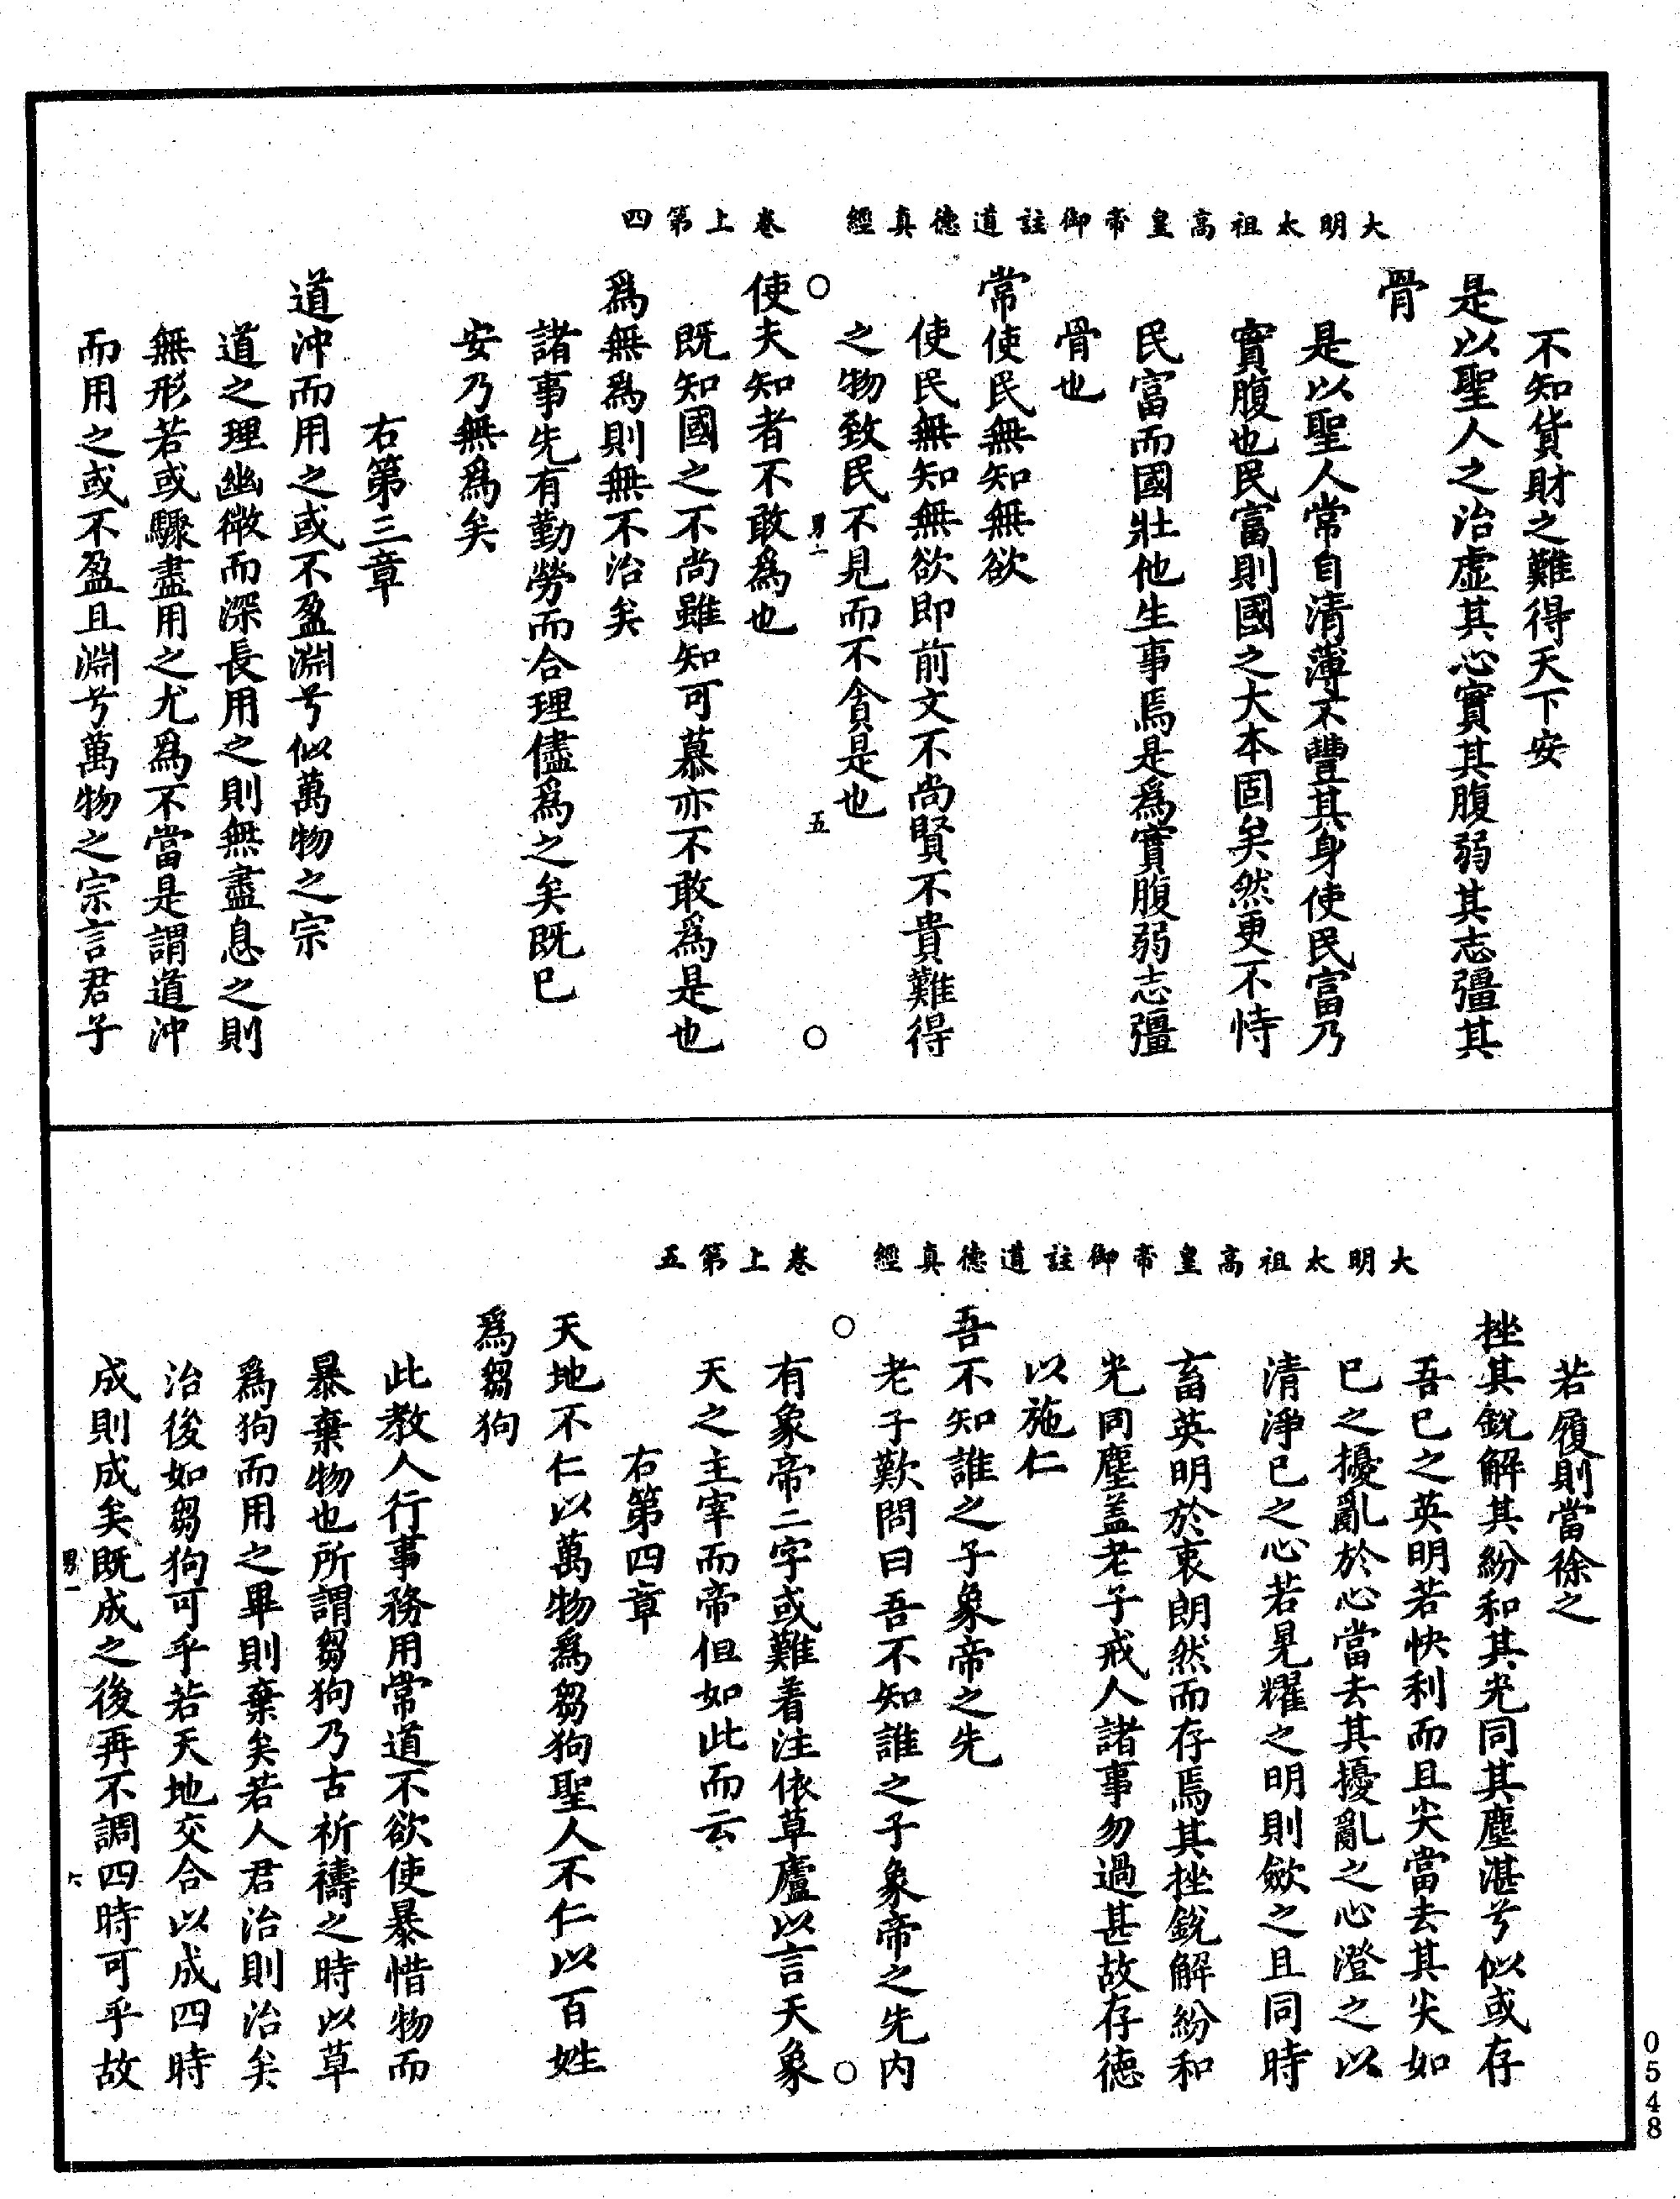 大明太祖高皇帝御註道德真經　卷上第四
不知貨財之難得天下安
是以聖人之治虛其心實其腹弱其志彊其
骨
是以聖人常自清薄不豐其身使民富乃
實腹也民富則國之大本固矣然更不恃
民富而國壯他生事焉是爲實腹弱志彊
骨也
常使民無知無欲
使民無知無欲即前文不尚賢不貴難得
之物致民不見而不貪是也
○　男一　五　○
使夫知者不敢爲也
既知國之不尚雖知可慕亦不敢爲是也
爲無爲則無不治矣
諸事先有勤勞而合理儘爲之矣既已
安乃無爲矣
右第三章
道沖而用之或不盈淵兮似萬物之宗
道之理幽微而深長用之則無盡息之則
無形若或驟盡用之尤爲不當是謂道沖
而用之或不盈且淵兮萬物之宗言君子
大明太祖高皇帝御註道德真經　卷上第五
若履則當徐之
挫其銳解其紛和其光同其塵湛兮似或存
吾已之英明若快利而且尖當去其尖如
已之擾亂於心當去其擾亂之心澄之以
清淨已之心若晃耀之明則歛之且同時
畜英明於衷朗然而存焉其挫銳解紛和
光同塵盖老子戒人諸事勿過甚故存德
以施仁
吾不知誰之子象帝之先
老子歎問曰吾不知誰之子象帝之先內
○　○
有象帝二字或難着注依草廬以言天象
天之主宰而帝但如此而云
右第四章
天地不仁以萬物爲芻狗聖人不仁以百姓
爲芻狗
此教人行事務用常道不欲使暴惜物而
暴棄物也所謂芻狗乃古祈禱之時以草
爲狗而用之畢則棄矣若人君治則治矣
治後如芻狗可乎若天地交合以成四時
成則成矣既成之後再不調四時可乎故
男一　六
0548